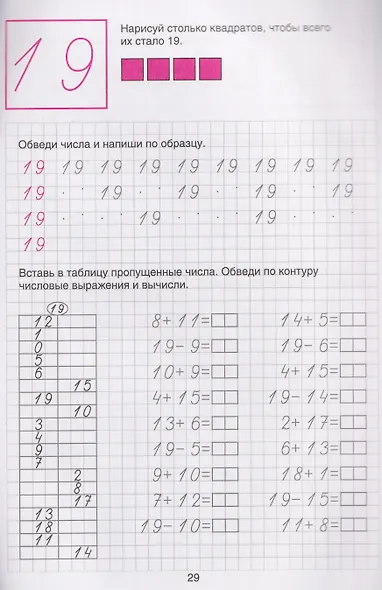 19
Нарисуй столько квадратов, чтобы всего
их стало 19.
Обведи числа и напиши по образцу.
19 19 19 19 19 19 19 19 19
19 · · 19 · · 19 · · 19 · · 19
19 · · · · 19 · · · · 19 · ·
19
Вставь в таблицу пропущенные числа. Обведи по контуру
числовые выражения и вычисли.
19
12
1
0
5
6
15
19
10
3
4
9
7
2
8
17
13
18
11
14
8+11=
19-9=
10+9=
4+15=
13+6=
19-5=
9+10=
7+12=
19-10=
14+5=
19-6=
4+15=
19-14=
2+17=
6+13=
18+1=
19-15=
11+8=
29